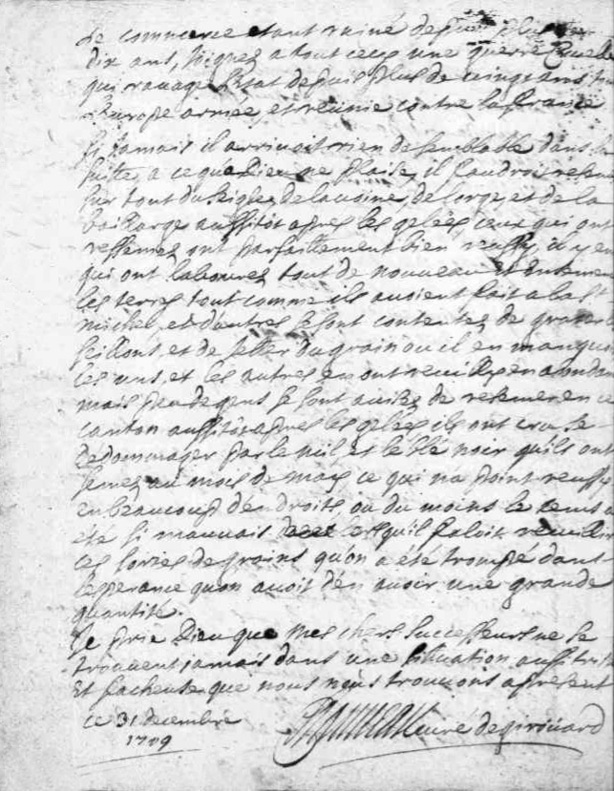 Le commerce etant ruiné depuis plus de
dix ans, joignez a tout cecy une guerre cruelle
qui ravage l'etat depuis plus de cinq ans
l'europe armée, et reunie contre la france
Si jamais il arrivoit rien de semblable dans la
suitte, a ce qu'a Dieu ne plaise, il faudroit
sur tout du seigle, de l'avoine, de l'orge, et de la
baillarge aussitôt apres les gelées, ceux qui ont
ressemez ont parfaittement bien reussy, il y en
qui ont labourez tout de nouveau et
les terres tout comme ils avoient fait a la St
michel, et d'autres se sont contentez de grater
seillons, et de jetter du grain ou il en manquoit
les uns, et les autres en ont recuilly en
mais peu de gens se sont avisez de resemer en ce
canton aussitôt apres les gelées ils ont cru se
dedommager par le mil et le blé noir qu'ils ont
semez au mois de may ce qui n'a point reussy
en beaucoup d'endroits, ou du moins le tems a
été si mauvais lorsqu'il faloit recuillir
ces sortes de grains qu'on a été trompé dans
l'esperance qu'on avoit d'en avoir une grande
quantité.
Je prie Dieu que mes chers successeurs ne se
trouvent jamais dans une situation aussi triste
Et facheuse que nous nous trouvons apresent
ce 31 decembre
1709
curé de girouard